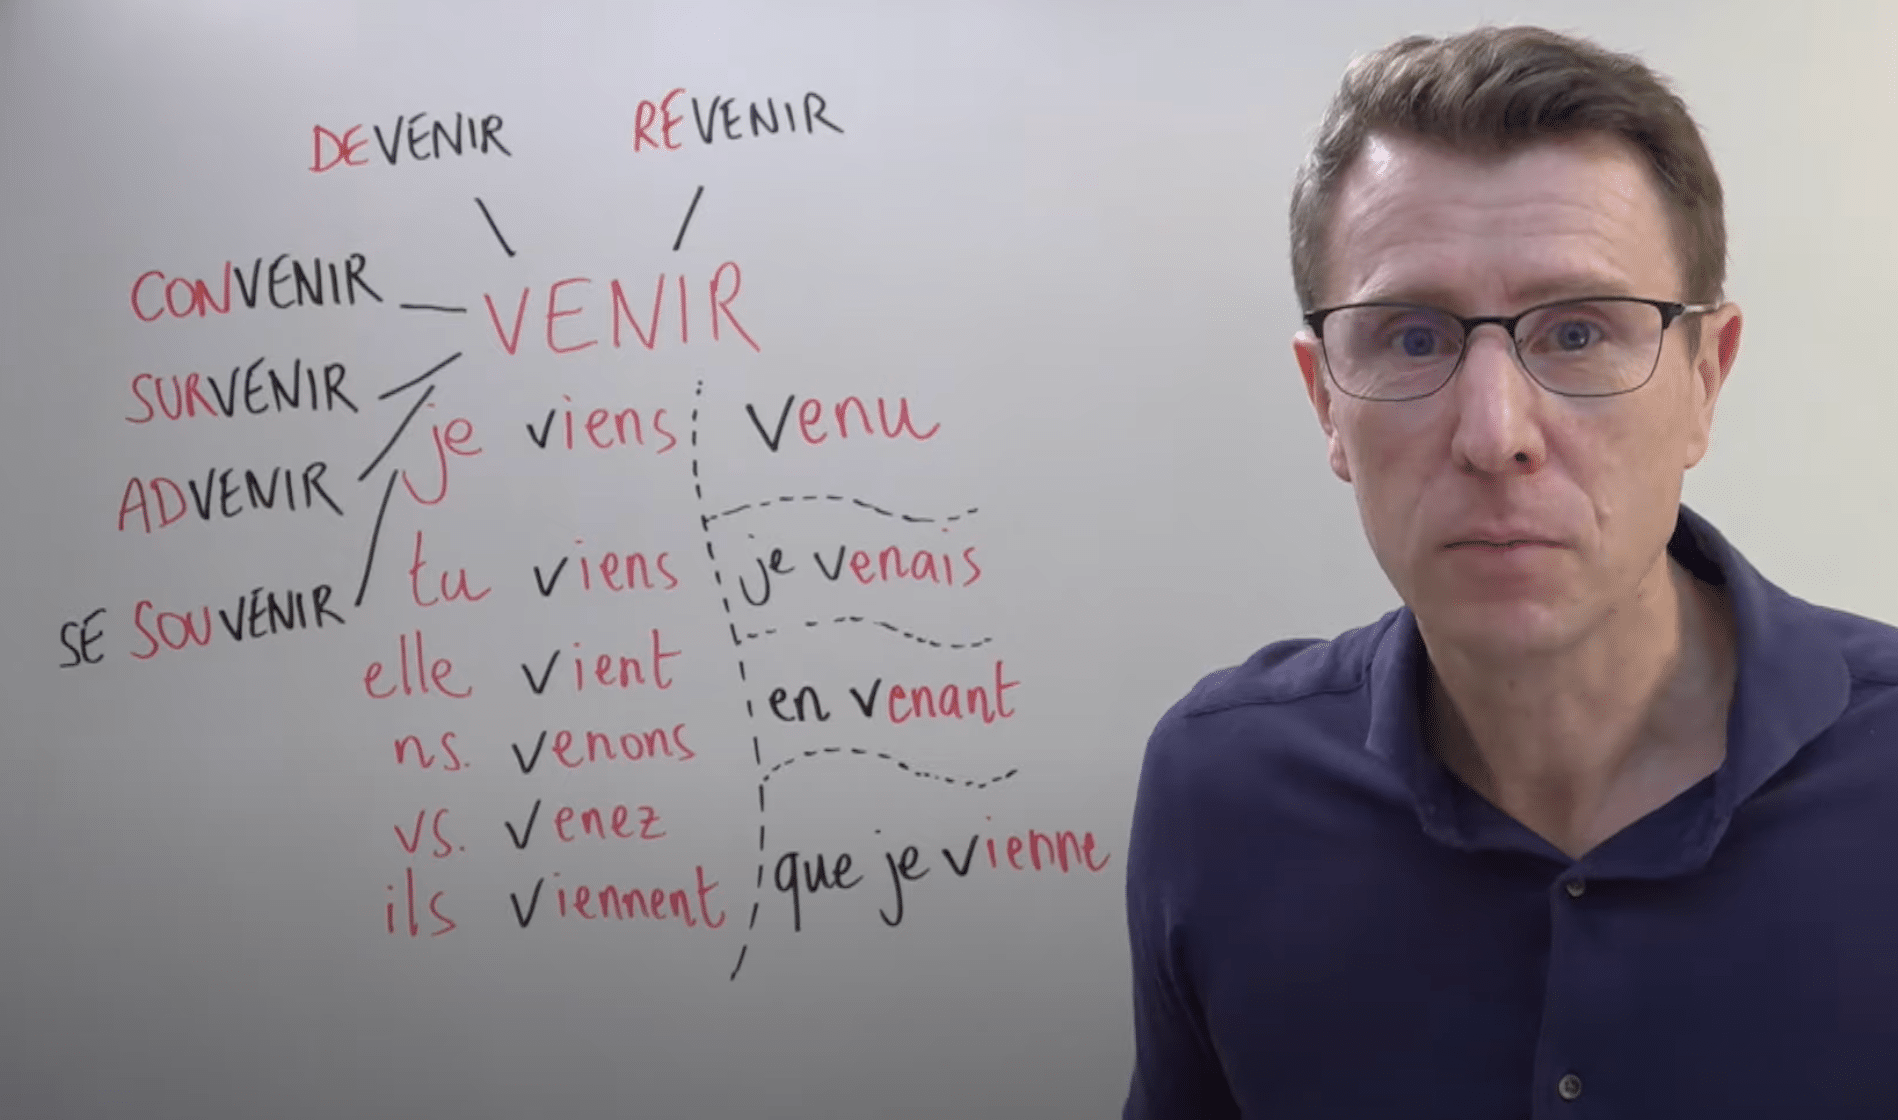 DEVENIR
REVENIR
CONVENIR
VENIR
SURVENIR
ADVENIR
SE SOUVENIR
je viens
tu viens
elle vient
ns. venons
vs. venez
ils viennent
venu
je venais
en venant
que je vienne